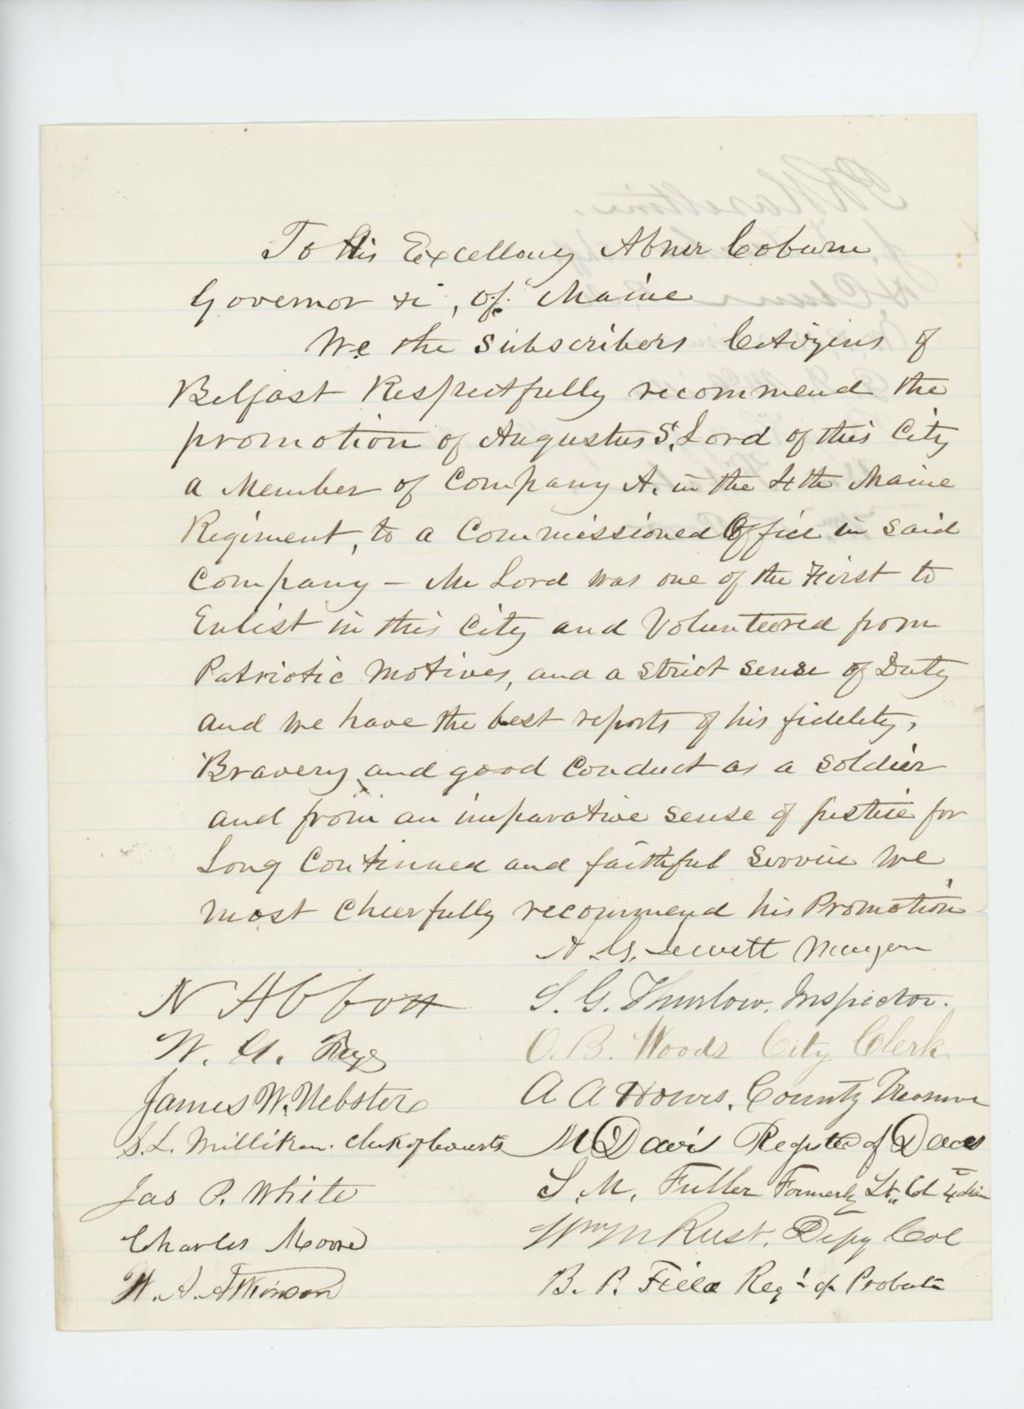 To His Excellency Abner Coburn
Governor &c, of Maine
We the Subscribers Citizens of
Belfast Respectfully recommend the
promotion of Augustus S. Lord of this City
a Member of Company A. in the 4th Maine
Regiment, to a Commissioned Office in said
Company – Mr Lord was one of the First to
Enlist in this City and Volunteered from
Patriotic Motives, and a Strict sense of Duty
and we have the best reports of his fidelity,
Bravery and good Conduct as a Soldier
and from an imparative sense of justice for
Long Continued and faithful Service We
most Cheerfully recommend his Promotion
A. G. Jewett Mayor
N Abbott
S. G. Thurlow, Inspector.
W. G. Frye
O. B. Woods City Clerk
James W. Webster
A A Howes, County Treasurer
S. L. Milliken. Clerk of Courts
M Davis Register of Deeds
Jas P. White
S. M. Fuller Formerly Lt. Col 4
Charles Moore
Wm M Rust, Depy Col
W. A. Atkinson
B. P. Field Reg'r of Probate